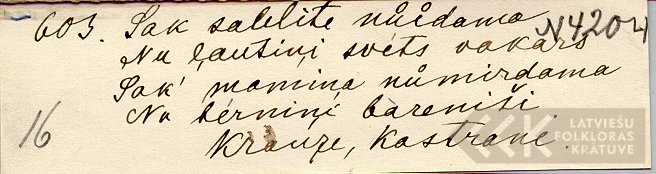 603. Sak salelite nůīdama N4204
Nu ļautiņi svēts vakars
Sak' momiņa nůmirdama
Nu bērniņi bareniši
16 Krauze, Kastrane.
LATVIEŠU
FOLKLORAS
KRĀTUVE